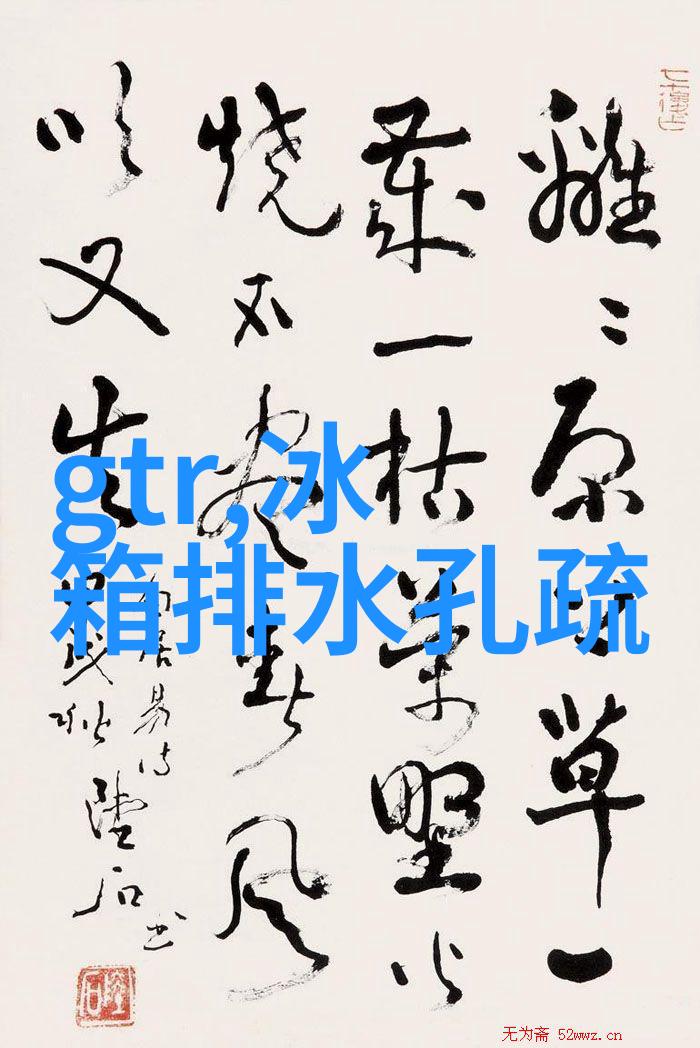 離離原上草一
歲一枯榮野火
烧不盡春风
吹又生
白居易诗
gtr,冰
箱排水孔疏
无为斋 52wwz.cn